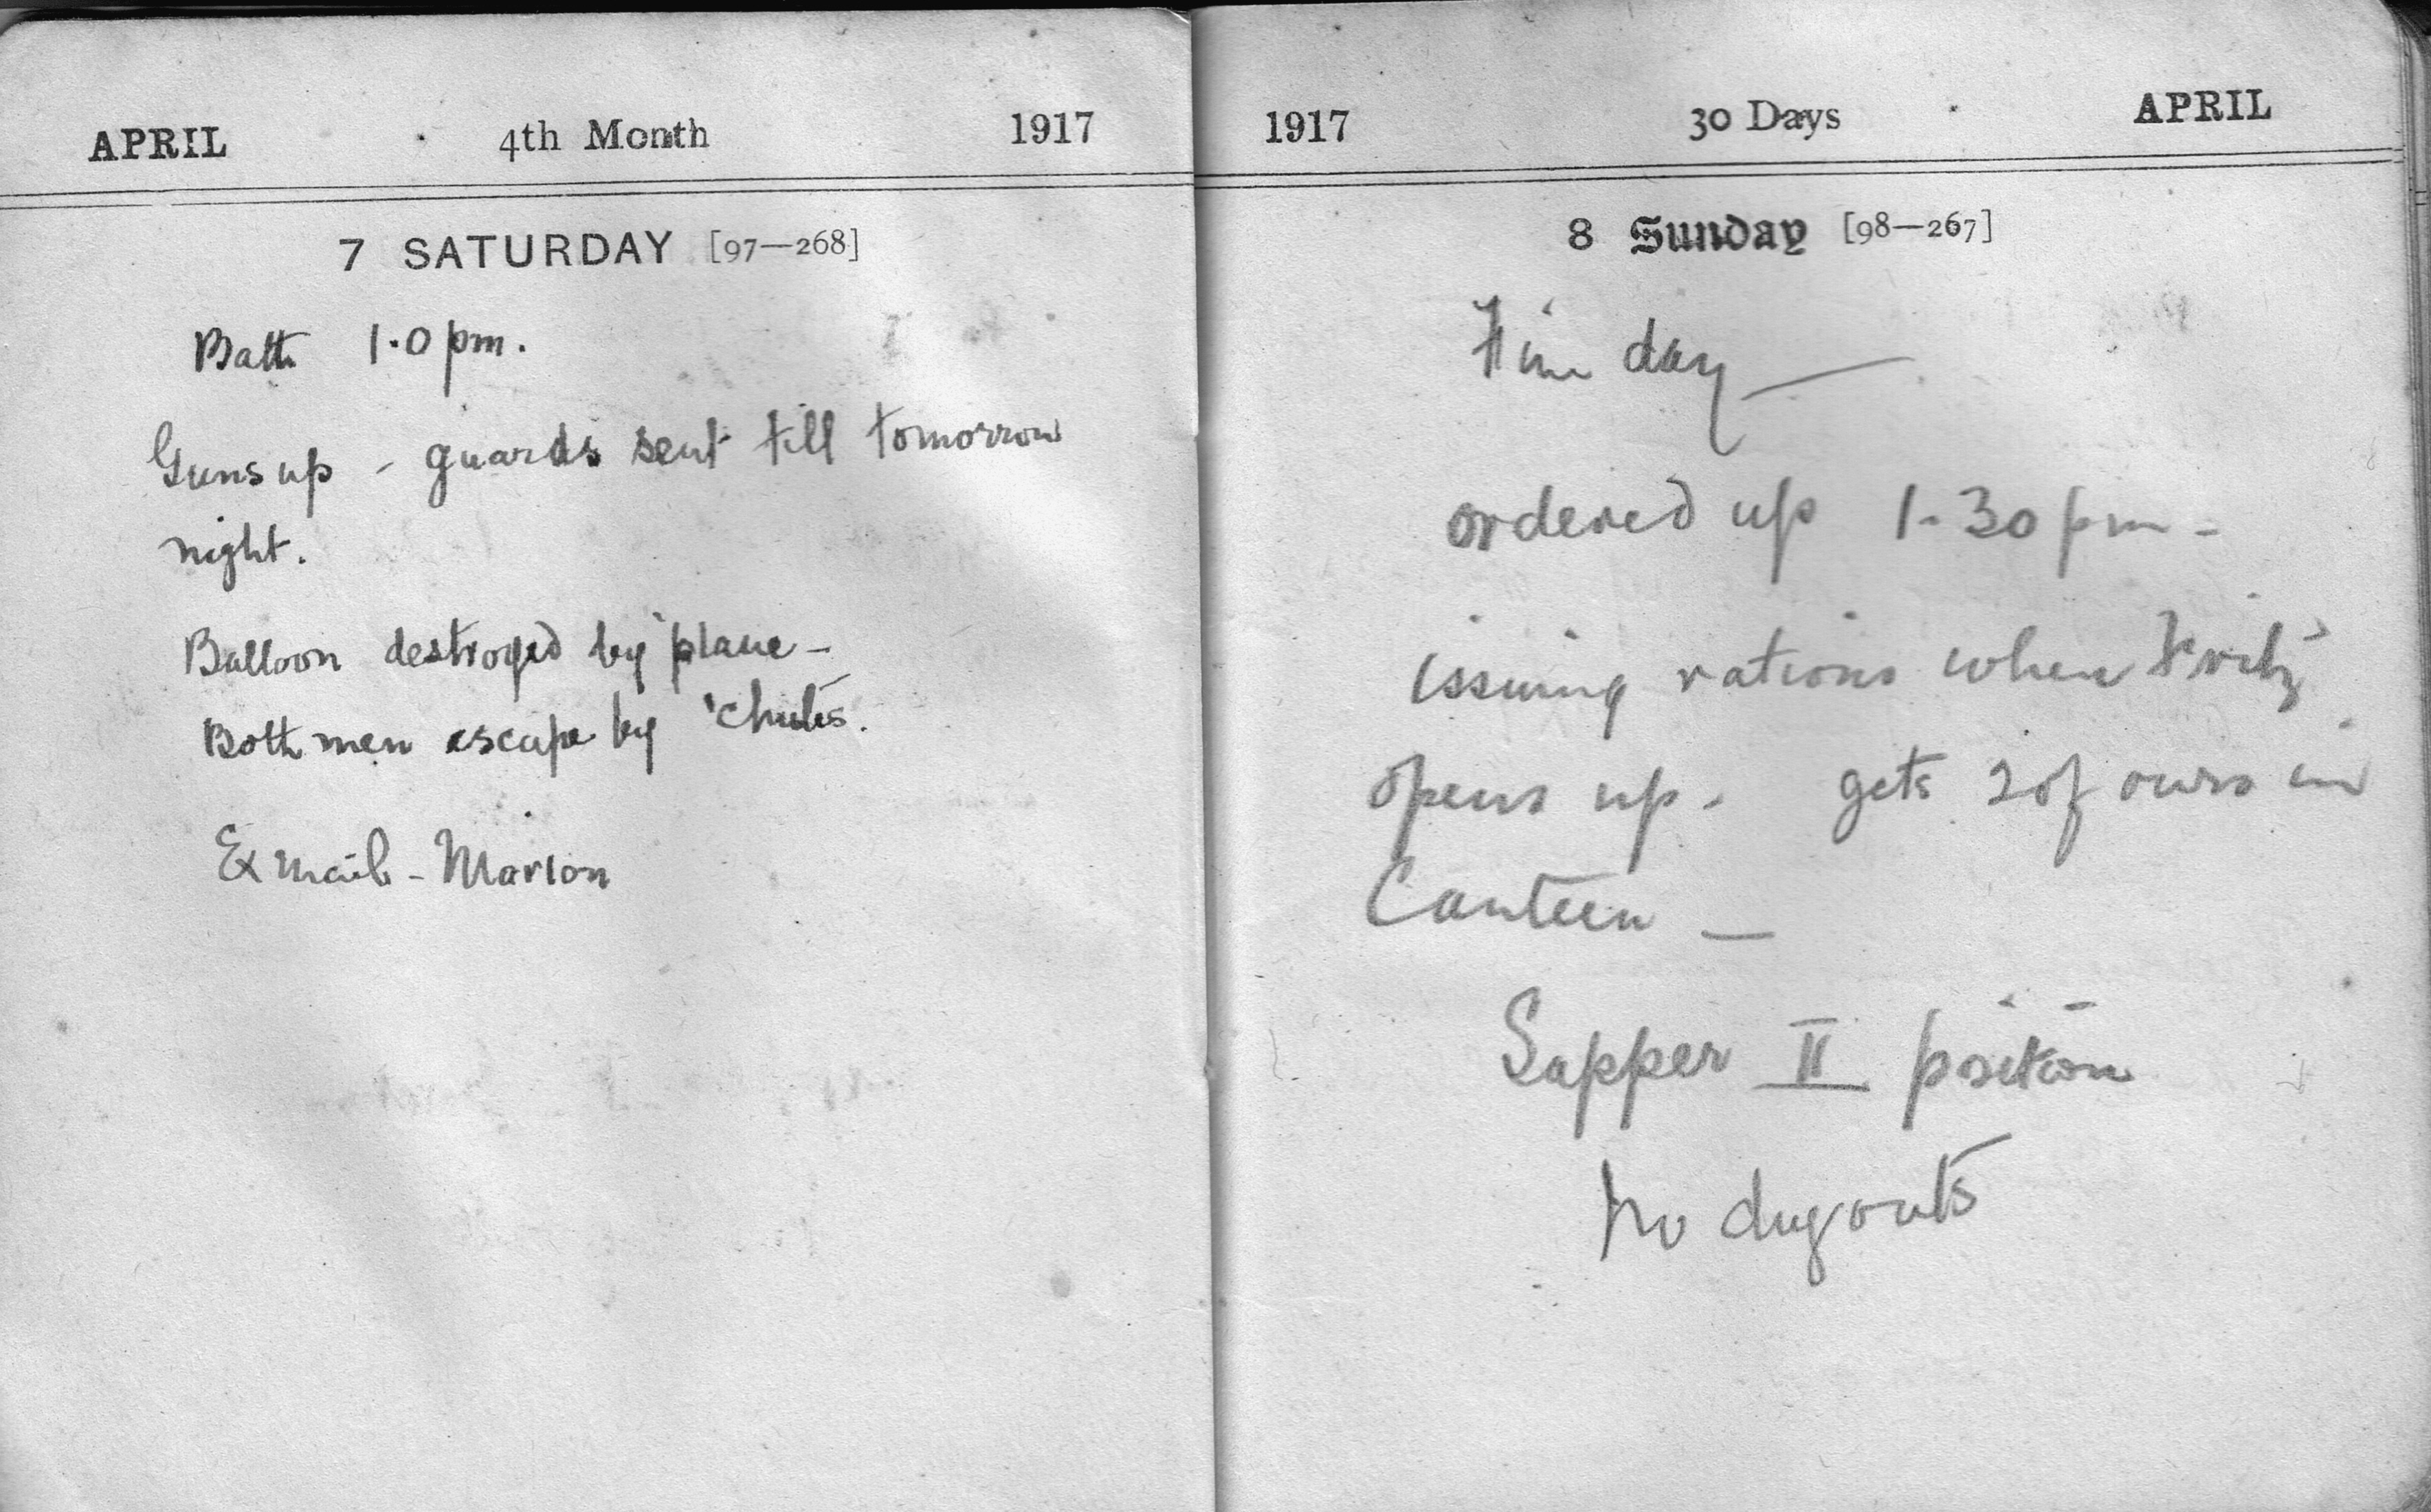 APRIL 4th Month 1917
7 SATURDAY [97—268]
Bath 1.0 pm.
Guns up - guards sent till tomorrow
night.
Balloon destroyed by 'plane -
Both men escape by 'chutes.
Ex mail - Marion
1917 30 Days APRIL
8 Sunday [98—267]
Fine day —
ordered up 1.30 pm -
issuing rations when Fritz
opens up - gets 2 of ours in
Canteen —
Sapper II position
No dugouts